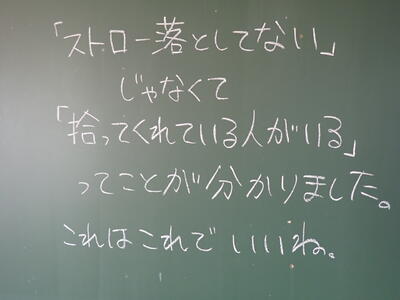 「ストロー落としてない」
じゃなくて
「拾ってくれている人がいる」
ってことが分かりました。
これはこれでいいね。